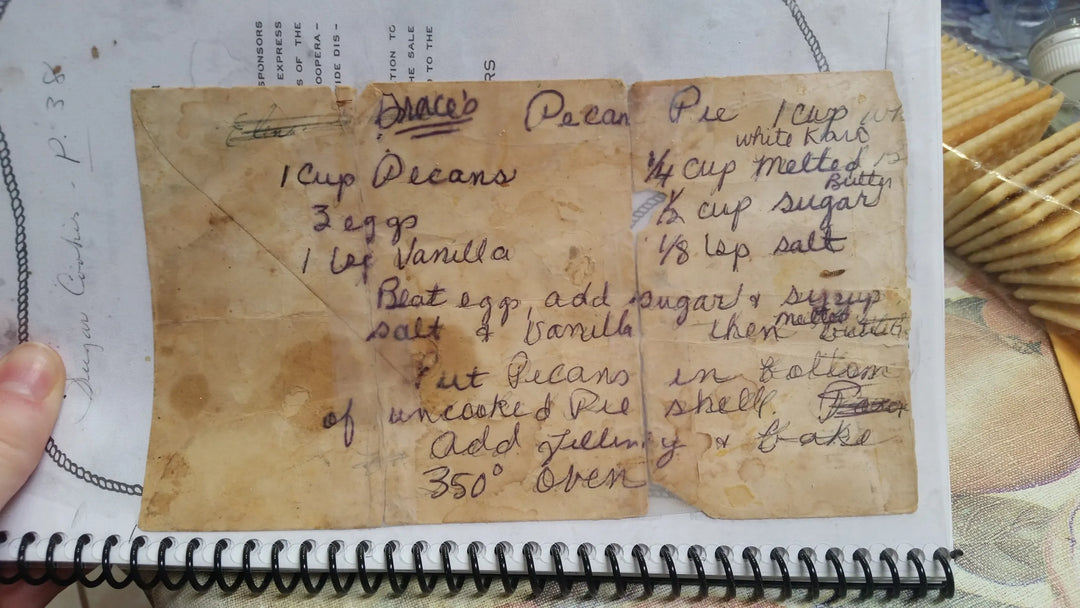 SPONSORS
EXPRESS
S OF THE
OOPERA -
IDE DIS -
TION TO
HE SALE
TO THE
RS
Sugar Cookies - P. 38
Grace's Pecan Pie 1 cup
white Karo
1 cup Pecans 1/4 cup melted
Butter
3 eggs 1/2 cup sugar
1 tsp Vanilla 1/8 tsp salt
Beat egg, add sugar & syrup
salt & Vanilla then melted butter
Put Pecans in bottom
of uncooked Pie shell.
Add filling & bake
350° oven